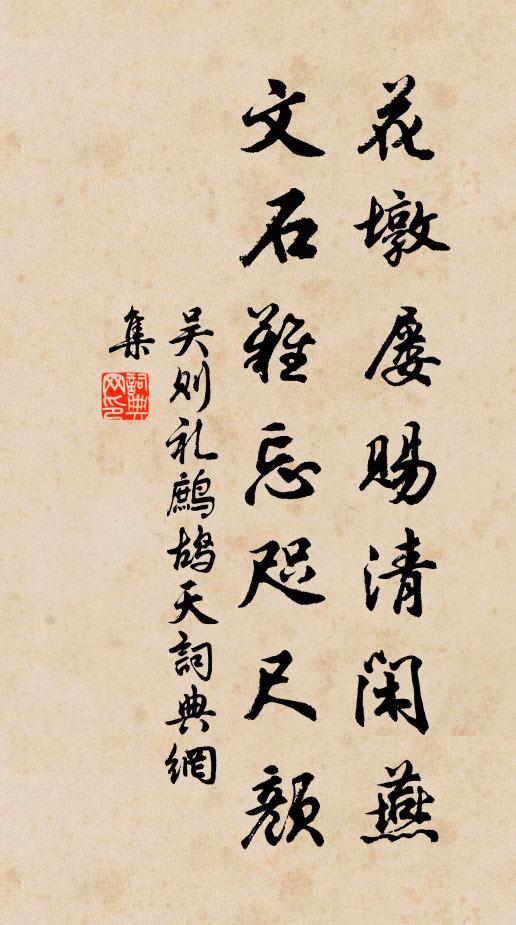 花墩屡賜清閑燕
文石難忘咫尺顏
吴则礼鷓鴣天詞典網
集
詞典
网印